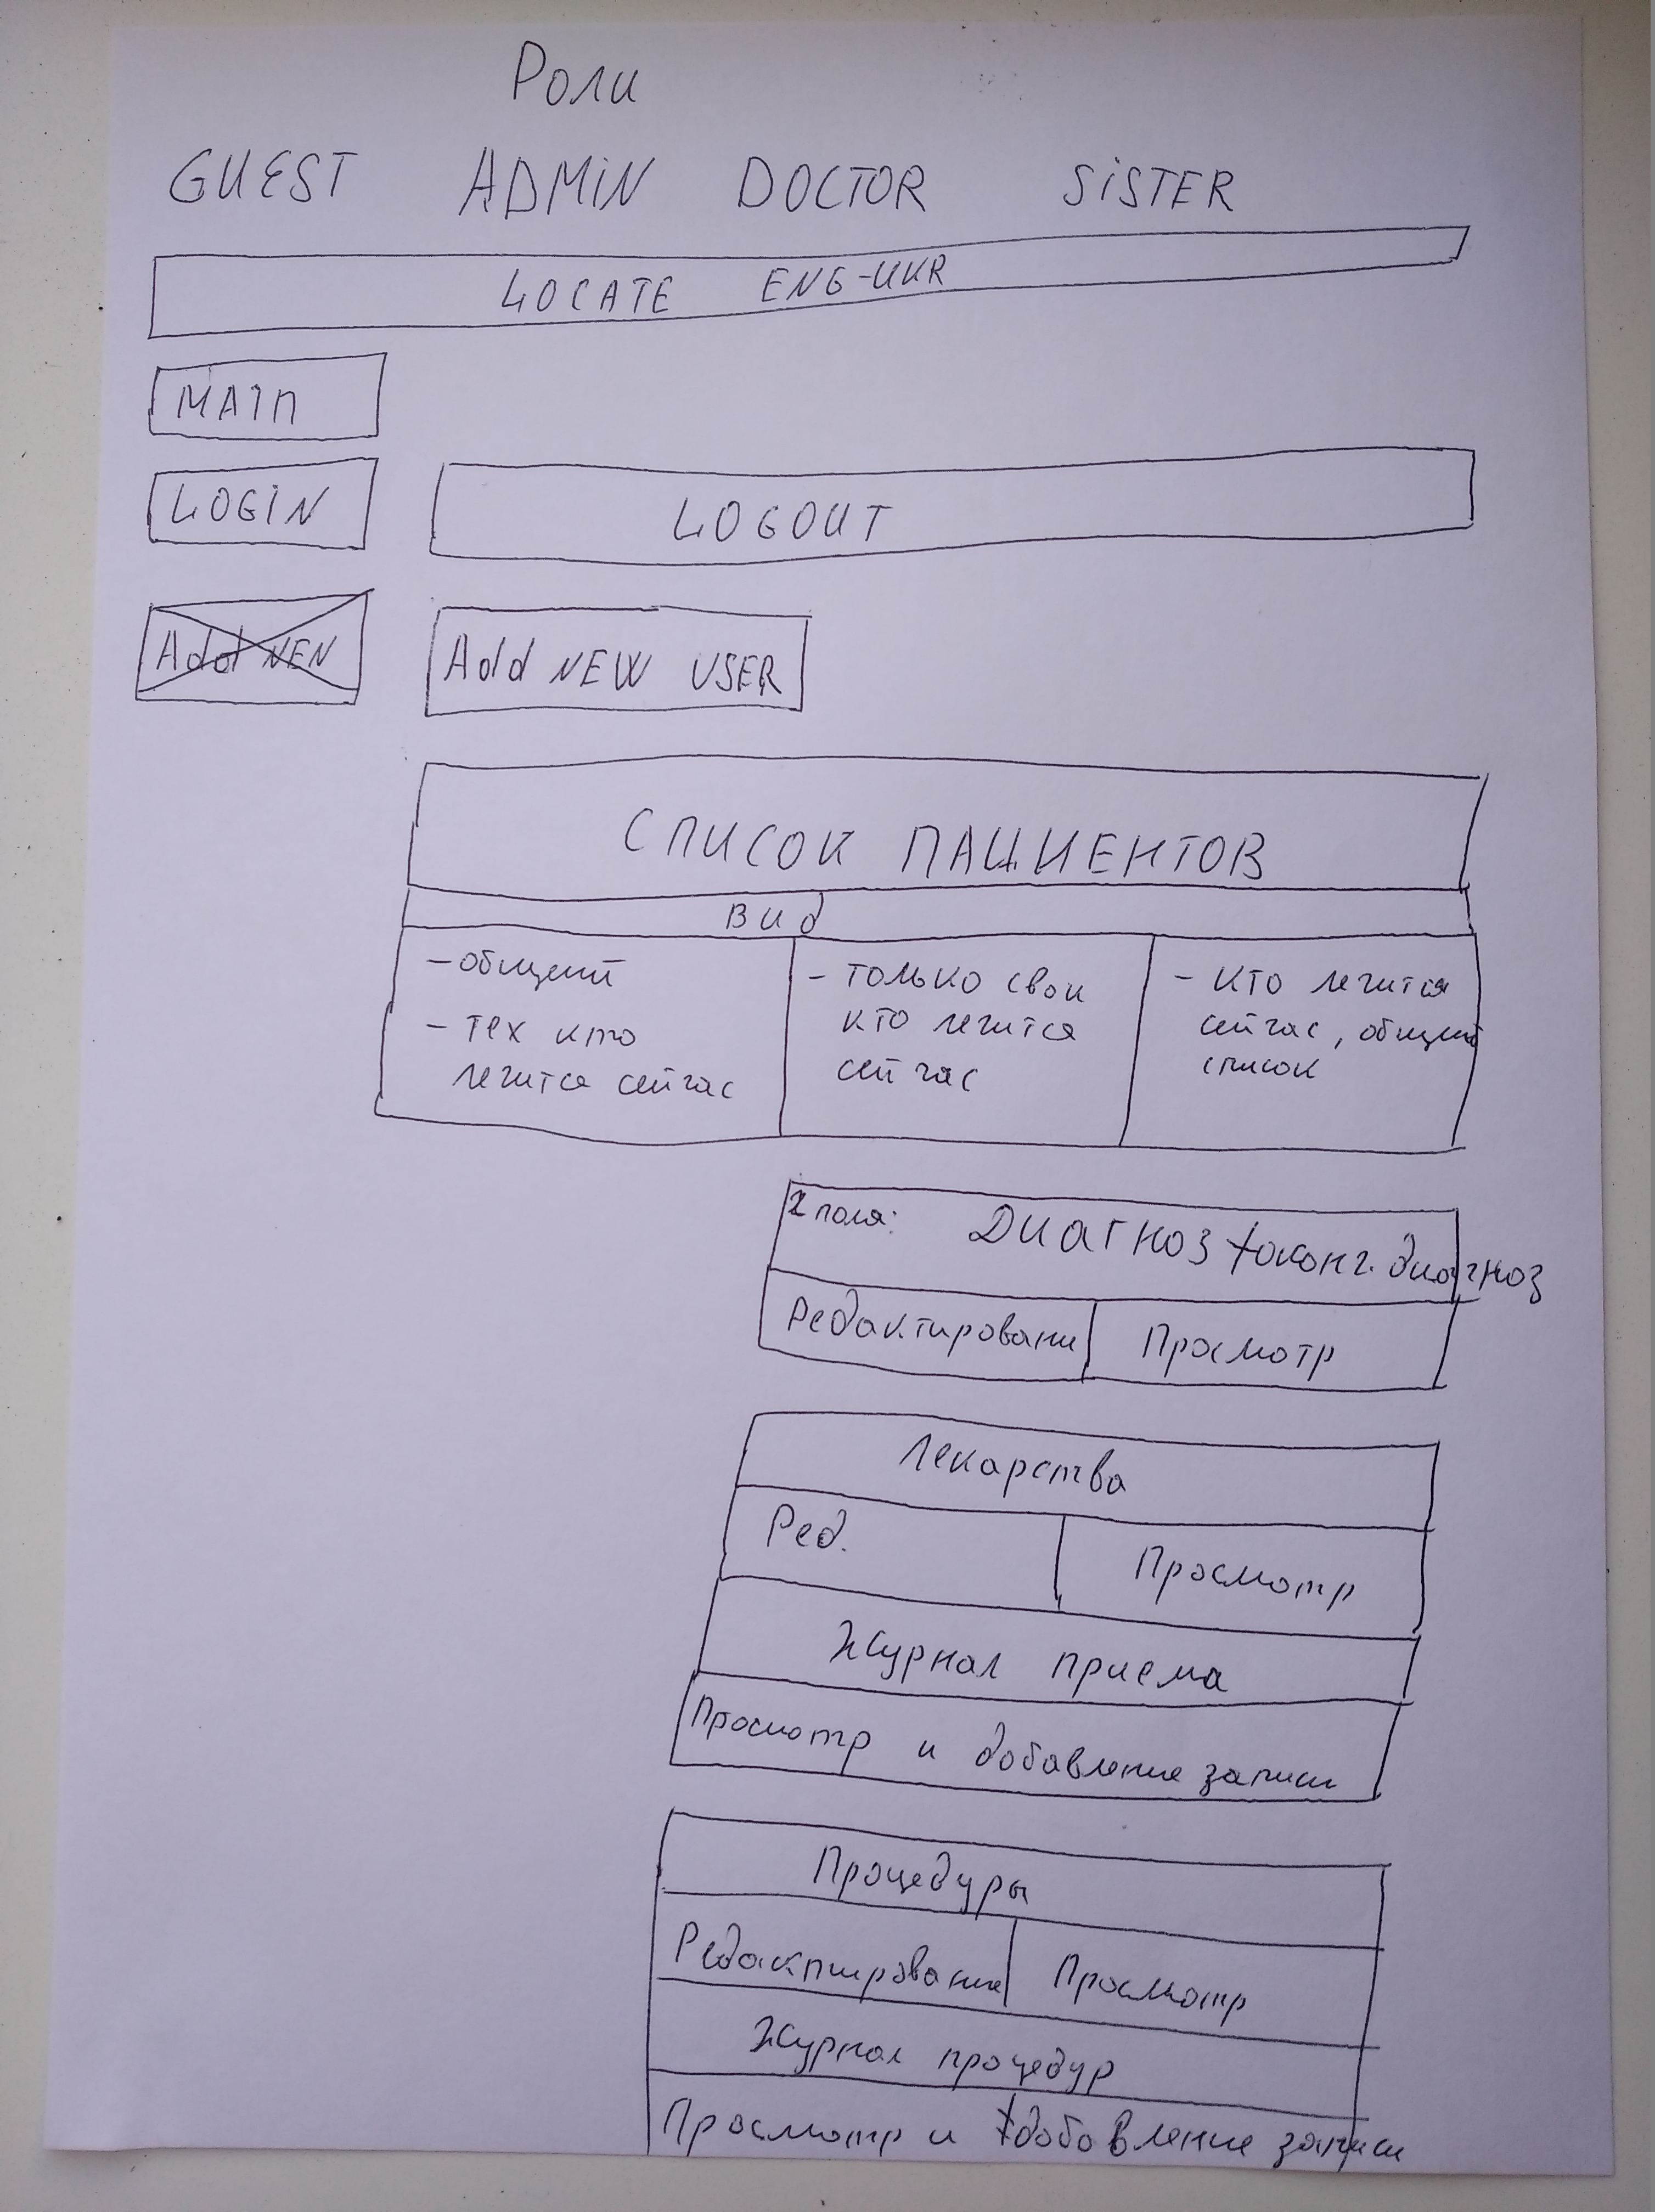 Роли
GUEST ADMIN DOCTOR SISTER
LOCATE ENG-UKR
MAIN
LOGIN LOGOUT
Add NEN Add NEW USER
СПИСОК ПАЦИЕНТОВ
вид
- общий
- тех кто
лечится сейчас
- только свои
кто лечится
сейчас
- кто лечится
сейчас, общий
список
2 поля: Диагноз + оконч. диагноз
Редактировани Просмотр
Лекарства
Ред. Просмотр
Журнал приема
Просмотр и добавление записи
Процедуры
Редактирование Просмотр
Журнал процедур
Просмотр и добавление записи